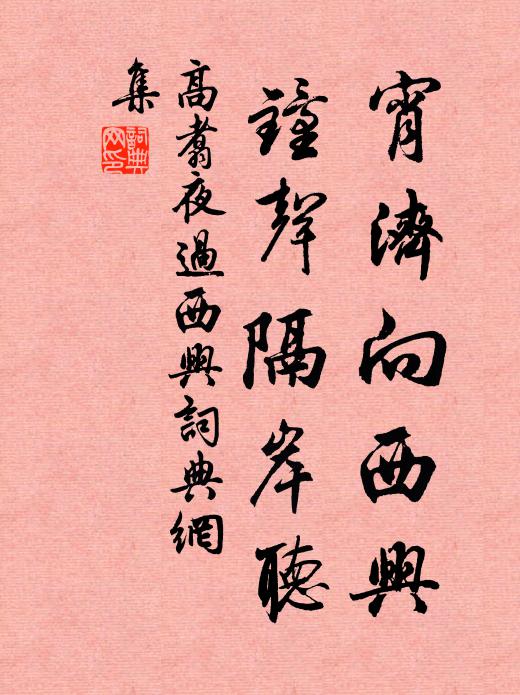 宵濟向西興
鐘聲隔岸聽
高翥夜過西興詞典網
集
詞典
网印